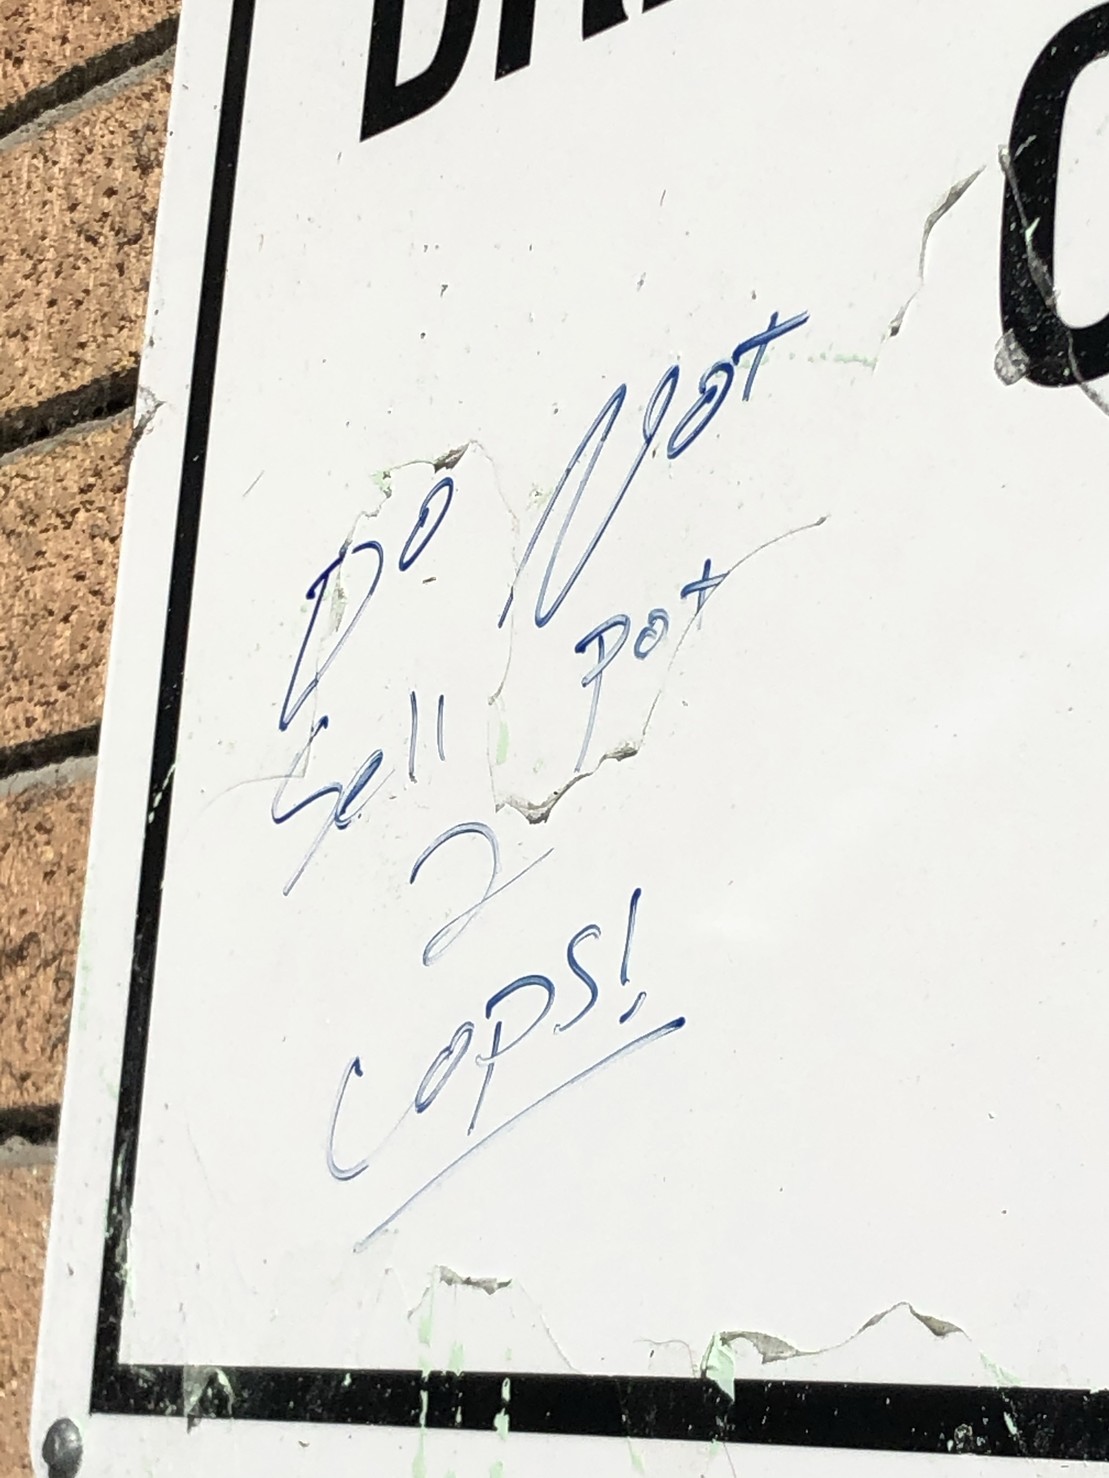 Do Not
Sell pot
2
cops!